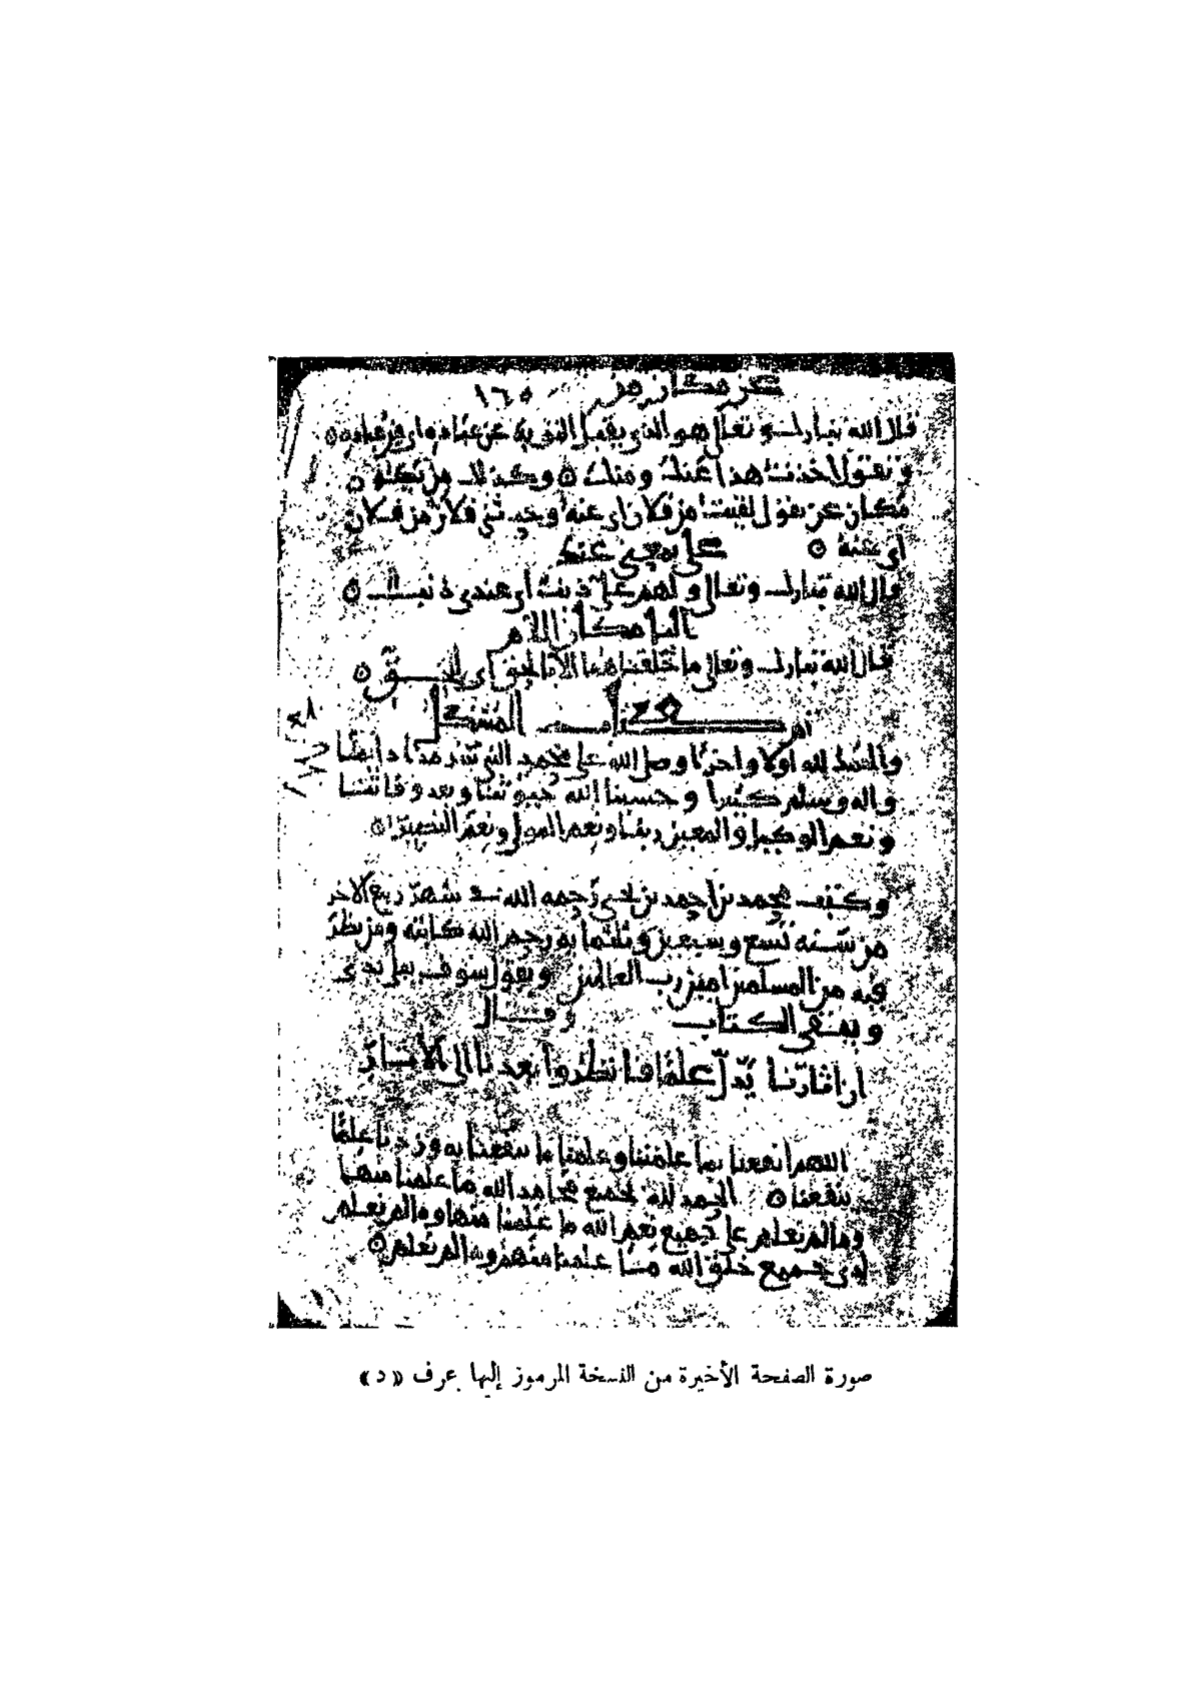 عن مكان من ١٦٥
قال الله تبارك وتعالى هو الذي يقبل التوبة عن عباده اي من عباده
وتقول اخذت هذا عنك ومنك وكذلك من تكون
مكان عن يقول لقيت من فلان اي عنه وحدثني فلان من فلان
اي عنه على بمعنى عند
قال الله تبارك وتعالى ولهم علي ذنب اي عندي ذنب
البا مكان اللام
قال الله تبارك وتعالى ما خلقناهما الا بالحق اي للحق
تم كتاب المشكل
والحمد لله اولا واخرا وصلى الله على محمد النبي دائما
واله وسلم كثيرا وحسبنا الله
ونعم الوكيل والمعين ربنا ونعم المولى ونعم النصير
وكتب محمد بن احمد بن يحيى رحمه الله في شهر ربيع الاخر
من سنة تسع وسبعين وثلثمايه رحم الله كاتبه ومن نظر
فيه من المسلمين امين رب العالمين ويقول سوف يبلى يدي
ويبقى الكتاب وقال
ان اثارنا تدل علينا فانظروا بعدنا الى الاثار
اللهم انفعنا بما علمتنا وعلمنا ما ينفعنا به وزدنا علما
ينفعنا الحمد لله بجميع محامد الله ما علمنا منها
وما لم نعلم على جميع نعم الله ما علمنا منها وما لم نعلم
جميع خلق الله ما علمنا منهم وما لم نعلم
صورة الصفحة الأخيرة من النسخة المرموز إليها بحرف «د»